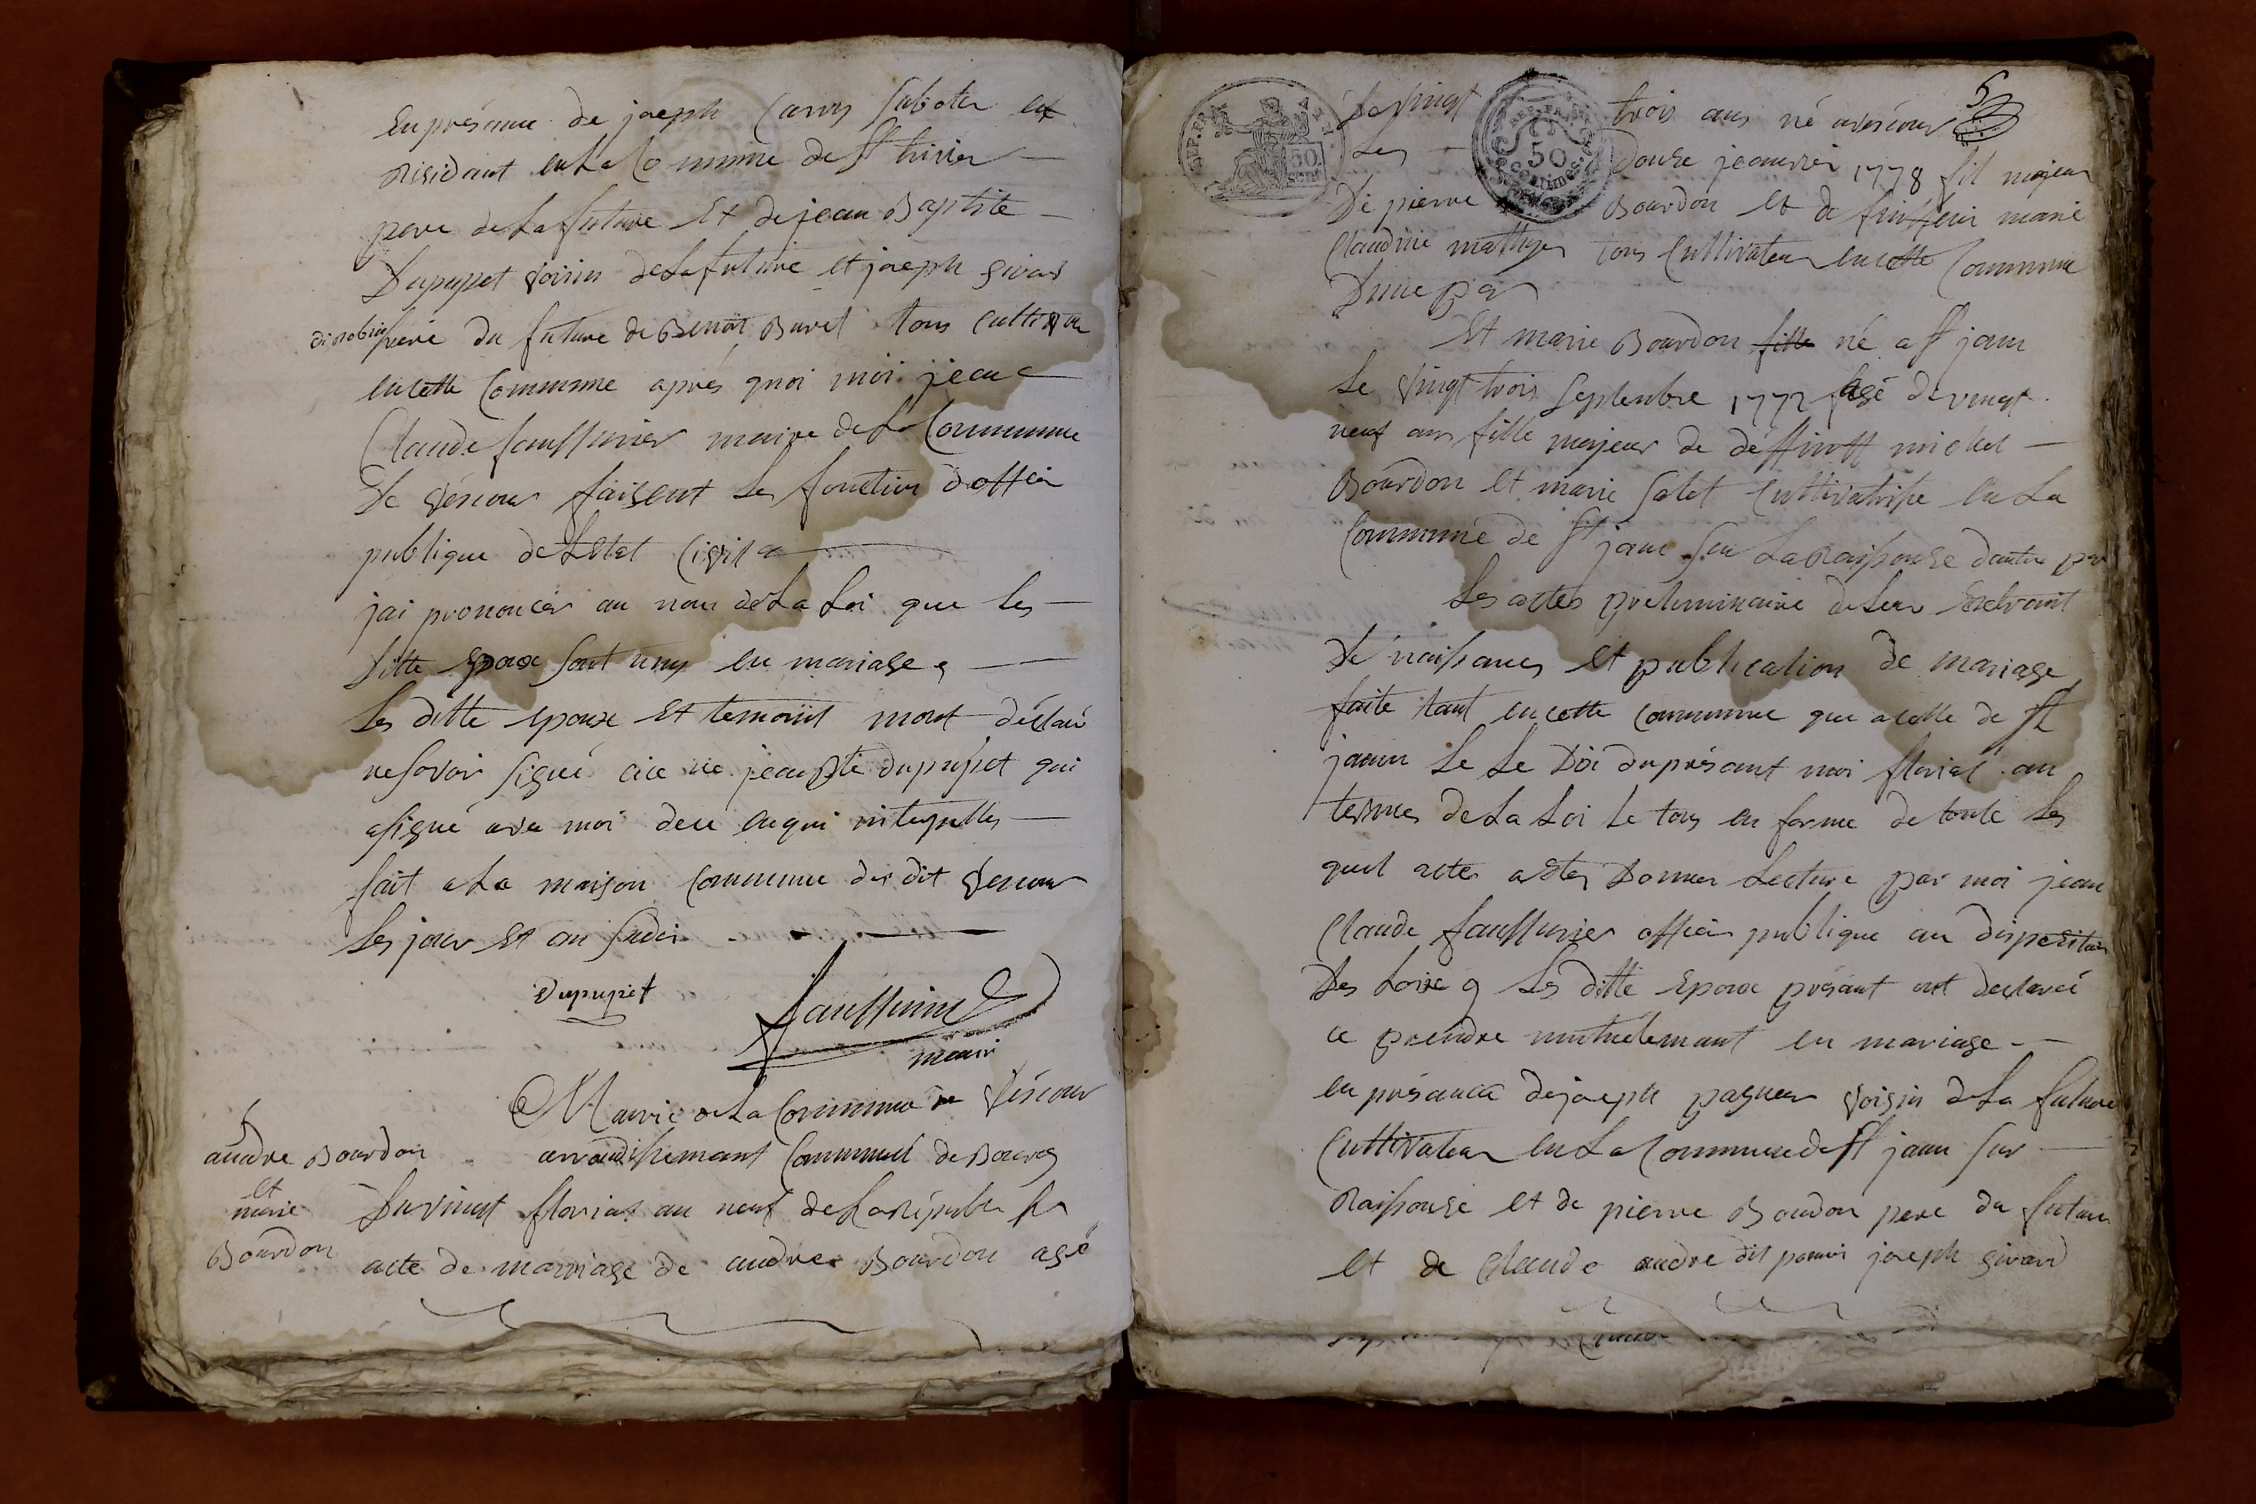 En présance de joseph Carry Sabotier et
Résidant en la Commune de St trivier
pere de la future Et de jean Baptiste
Dupupet voisin de la future et joseph givord
frere du future de Benoit Buret tous cultivateur
en cette Commune aprés quoi moi jean
Claude faussurier maire de la Commune
De Vescour faisent les fonction d'officier
publique de L'Etat Civil
jai prononcer au nom de La Loi que les
ditte Epoux sont unis en mariage
Les ditte epoux Et temoint mont déclaré
ne savoir signé jean Bte dupupet qui
a signé avec moi de ce enqui interpelles
fait a La maison Commune du dit Vescour
Les jour Et an sudit
Dupupet
faussurier
maire
Mairie de La Commune de Véscour
andre Bourdon
et
marie
Bourdon
arrondissemant Communal de Bourg
Du vinct florial an neuf de La Républi
acte de marriage de andre Bourdon agé
5
REP. FRA.
50
CENT
REP. FRA.
50
CENTIMES
De vingt trois ans né a Vescour
Les Douze jeanvier 1778 fil majeur
De pierre Bourdon et de marie
Claudine mathyer tous Cultivateur en cette Commune
Dune par
Et marie Bourdon fille né a St jean
Le vingt trois Septenbre 1772 agé de vingt
neuf ans fille majeur de deffunt michel
Bourdon et marie Salet Cultivatrisse en La
Commune de St jean sur La Raissouze dautre par
Les actes preliminaire de Leur Extrait
De naissances Et publication de mariage
faite tant en cette commune que a celle de St
jeann Le Le Dix du présant moi florial au
termes de La Loi Le tous en forme de toute Les
quel actes a Eter Donner Lecture par moi jean
Claude faussurier officier publique au
Des Loix Les ditte Epoux présant ont declaré
ce prendre mutuelemant en mariage
en présance de joseph pagnier Voisin de La future
Cultivateur en La Commune de St jean sur
Raissouze et de pierre Bourdon pere du future
et de Claude andre dit joseph givord